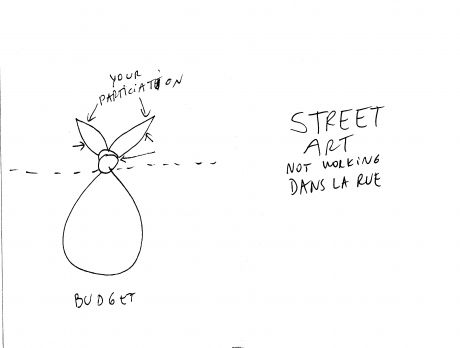 YOUR
PARTICIATION
BUDGET
STREET
ART
NOT WORKING
DANS LA RUE